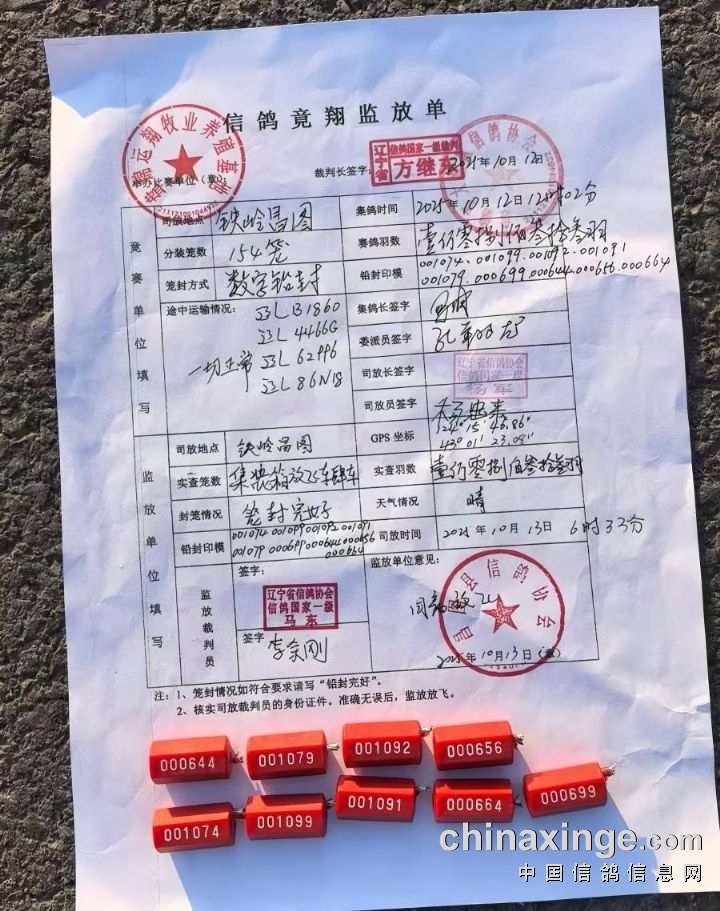 信鸽竟翔监放单
运翔牧业养殖基地
信鸽协会
裁判长签字：
辽宁省 信鸽国家一级裁判 方继东
2025年10月12日
举办比赛单位（章）
竞赛单位填写
司放地点 铁岭昌图 集鸽时间 2025年10月12日12时02分
分装笼数 154笼 赛鸽羽数 壹仟零捌佰叁拾叁羽
笼封方式 数字铅封 铅封印模 001074、001099.001092.001091
001079.000699.000644.000656.000664
途中运输情况： 辽LB1860 集鸽长签字
辽L4466G 委派员签字
一切正常 辽L62996 司放长签字 辽宁省信鸽协会
信鸽国家一级
杨军
辽L86N18 司放员签字
监放单位填写
司放地点 铁岭昌图 GPS 坐标 124°15′46.86″
43°01′23.08″
实查笼数 集装箱放飞车肆车 实查羽数 壹仟零捌佰叁拾叁羽
封笼情况 笼封完好 天气情况 晴
铅封印模 001074 001099 001092 001091
001079 000699 000644 000656
000664
司放时间 2025年10月13日6时33分
监放裁判员
签字： 监放单位意见：
辽宁省信鸽协会
信鸽国家一级
马东
同意放飞
昌图县信鸽协会
签字 李宗刚
2025年10月13日（章）
注：1、笼封情况如符合要求请写“铅封完好”。
2、核实司放裁判员的身份证件。准确无误后，监放放飞。
000644 001079 001092 000656
001074 001099 001091 000664 000699
chinaxinge.com
中国信鸽信息网